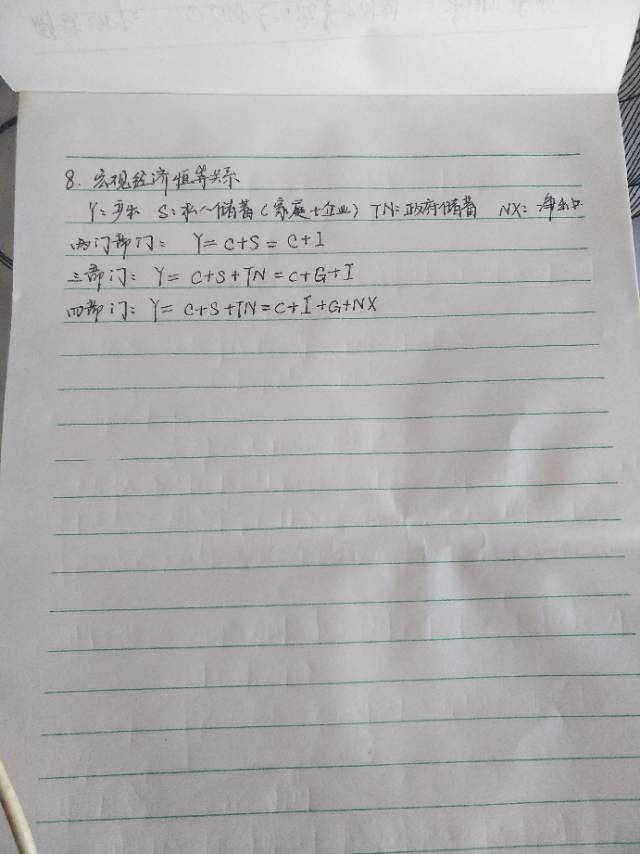 8. 宏观经济恒等关系
Y: 产出 S: 私人储蓄(家庭+企业) TN: 政府储蓄 NX: 净出口
两门部门: Y= C+S = C+I
三部门: Y= C+S+TN = C+G+I
四部门: Y= C+S+TN = C+I+G+NX